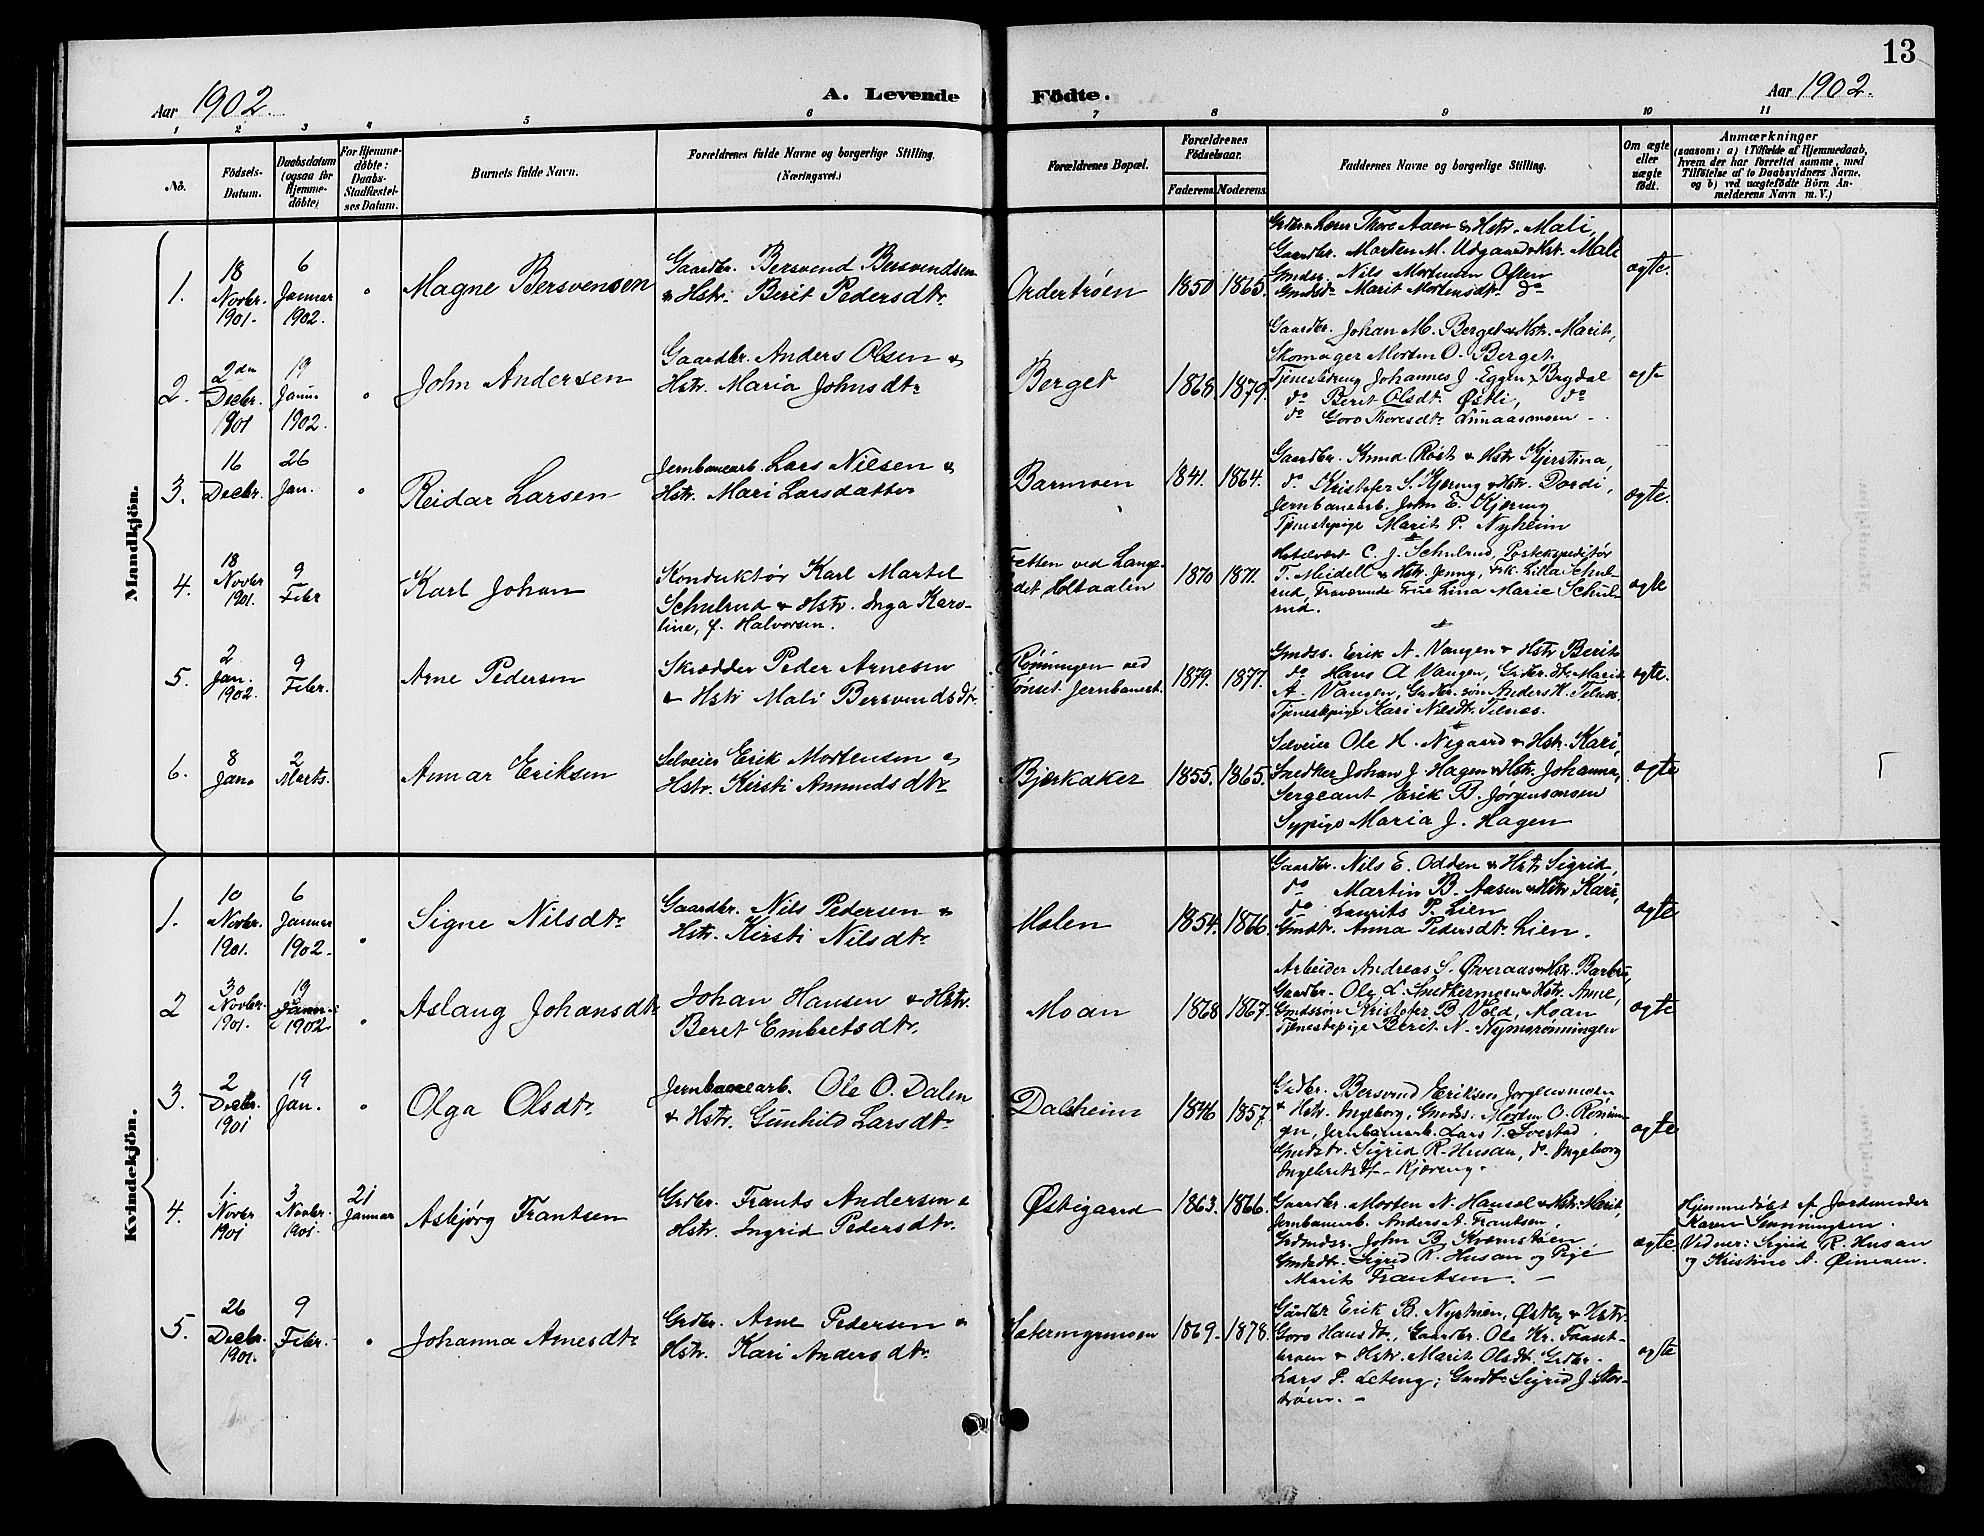 13
Aar 1902 A. Levende Födte. Aar 1902.
1 2 3 4 5 6 7 8 9 10 11
No.
Födsels-
Datum.
Daabsdatum
(ogsaa for
Hjemme-
døbte)
For Hjemme-
døbte:
Daabs-
Stadfæstel-
ses Datum.
Barnets fulde Navn.
Forældrenes fulde Navne og borgerlige Stilling.
(Næringsvei.)
Forældrenes Bopæl.
Forældrenes
Födselsaar.
Faderens. Moderens.
Faddernes Navne og borgerlige Stilling.
Om ægte
eller
uægte
født.
Anmærkninger
(saasom: a) i Tilfælde af Hjemmedaab,
hvem der har forrettet samme, med
Tilföielse af to Daabsvidners Navne,
og b) ved uægtefödte Börn An-
melderens Navn m. V.)
Mandkjön.
1.
18
Novbr.
1901.
6
Januar
1902.
Magne Bersvensen
Gaardbr. Bersvend Bersvendsen
& Hstr. Berit Pedersdtr.
1850 1865.
Thore Aaen & Hstr. Mali,
Gaardbr. Morten M. Udgaard & Hst. Mali
Nils Mortensen
Marit Mortensdtr. do
ægte.
2.
2den
Decbr.
1901
19
Janu.
1902.
John Andersen
Gaardbr. Anders Olsen &
Hstr. Maria Johnsdtr
Berget
1868 1879.
Gaardbr. Johan M. Berget & Hstr. Marit,
Skomager Morten O. Berget
Tjenestedreng Johannes J. Eggen, Brydal
do Berit Olsdt. Østli, do
do Goro Thoresdtr
ægte
3.
16
Decbr.
26
Jan.
Reidar Larsen
Jernbanearb. Lars Nilsen &
Hstr. Mari Larsdatter
Barmoen
1841. 1864.
Gaardbr. Knud Røst & Hstr Kjerstina,
do Kristofer S. Kjæring & Hstr. Dordi,
Jernbanearb. John E. Kjæring
Tjenestepige Marit P. Nyheim
ægte.
4.
18
Novbr
1901.
9
Febr
Karl Johan
Konduktør Karl Martel
Schulrud & Hstr. Inga Karo-
line, f. Halvorsen.
Fetten ved Lange-
det Holtaalen
1870 1871.
Hotelvært C. J. Schulrud, Postekspeditør
T. Meidell & Hstr. Jenny, Frk. Lilla Schul-
rud, Fraværende Frue Lina Marie Schul-
rud.
ægte
5.
2
Jan.
1902.
9
Febr.
Arne Pedersen
Skrædder Peder Arnesen
& Hstr Mali Bersvendsdtr.
Rønningen ved
Tønset Jernbanest.
1879. 1877.
Gmdss. Erik A. Vangen & Hstr Berit
do Hans A Vangen, Marit
A. Vangen, Anders K. Telnes
Tjenestepige Kari Nilsdtr. Telnes.
ægte.
6.
8
Jan.
2
Marts.
Annar Eriksen
Selveier Erik Mortensen &
Hstr. Kirsti Amundsdtr
Bjerkaker
1855. 1865.
Selveier Ole H. Nygaard & Hstr. Kari,
Snedker Johan J. Hagen & Hstr. Johanna,
Sergeant Erik B. Jørgensmoen
Sypige Maria J. Hagen
ægte
Kvindekjön.
1.
10
Novbr.
1901.
6
Januar
1902.
Signe Nilsdtr
Gaardbr. Nils Pedersen &
Hstr. Kirsti Nilsdtr.
Holen
1854. 1866.
Gaardbr. Nils E. Odden & Hstr Sigrid,
do Martin B. Aasen & Hstr Kari,
do Laurits P. Lien
Gmdt. Anna Pedersdtr Lien.
ægte
2
30
Novbr.
1901.
19
Januar
1902
Aslaug Johansdtr
Johan Hansen & Hstr.
Beret Embretsdtr.
Moan
1868 1867.
Arbeider Andreas S. Øveraas & Hstr. Barbro,
Gaardbr. Ole L. Snedkermoen & Hstr. Anne,
Gmdssøn Kristofer B Vold, Moan
Tjenestepige Berit N. Nymorønningen
ægte
3.
2
Decbr.
1901
19
Jan.
Olga Olsdtr.
Jernbanearb. Ole O. Dalen
& Hstr. Gunhild Larsdtr
Dalsheim
1846 1857.
Grdbr. Bersvend Eriksen Jørgensmoen
& Hstr. Ingeborg, Gmdss. Morten O. Rønin-
gen, Jernbanearb. Lars T. Svestad,
Gmdstr. Sigrid R. Husan, do Ingeborg
Ingebretsdt. Kjæreng.
ægte
4.
1.
Novbr
1901
3
Novbr.
1901.
21
Januar
Asbjørg Frantsen
Grdbr. Frants Andersen &
Hstr. Ingrid Pedersdtr.
Østigaard
1863. 1866.
Gaardbr. Morten N. Hansel & Hstr. Marit,
Jernbanearb. Anders A. Frantsen,
John B. Kværntrøen,
Gmdsdtr. Sigrid R. Husan og Pige
Marit Frantsen.
ægte
Hjemmedøbt af Jordemoder
Karen Sinningsen.
Vidner: Sigrid R. Husan
og Kristine A. Øinaaen.
5.
26
Decbr.
1901.
9
Febr.
Johanna Arnesdtr
Grdbr. Arne Pedersen &
Hstr. Kari Andersdtr.
Sætermyrmoen
1869. 1878.
Gårdbr Erik B. Nystuen, Østby & Hstr.
Goro Hansdtr., Gaardbr. Ole Kr.
& Hstr. Marit Olsdt. Grdbr.
Lars P. Leteng; Gmdtr Sigrid J. Stor-
trøen. —
ægte